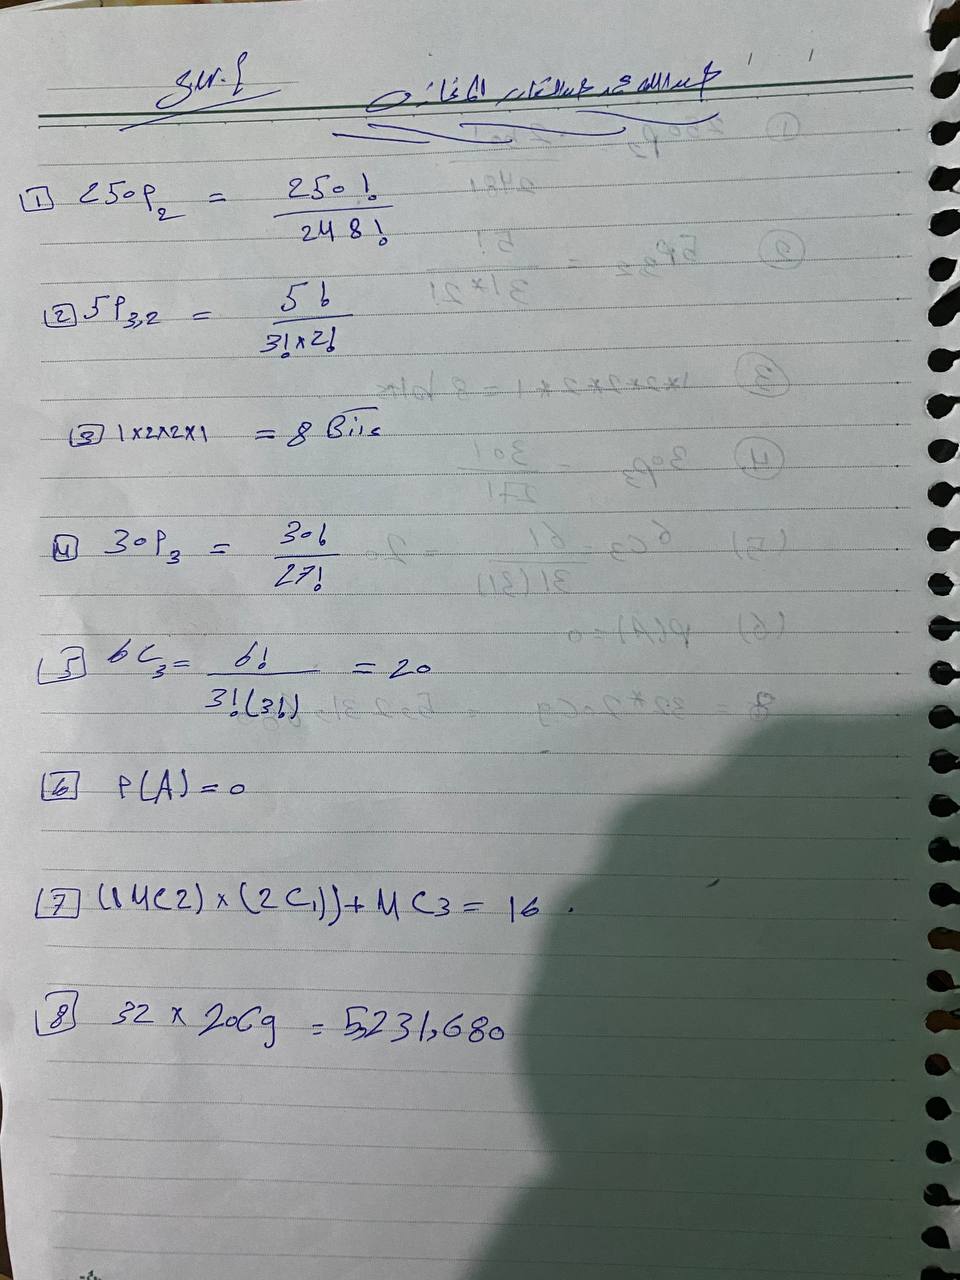 1 250P2 = 250! / 248!
2 5P3,2 = 5! / 3!x2!
3 1x2x2x1 = 8 Bits
4 30P3 = 30! / 27!
5 6C3 = 6! / 3!(3!) = 20
6 P(A) = 0
7 ((4C2) x (2C1)) + 4C3 = 16
8 32 x 20C9 = 5,231,680